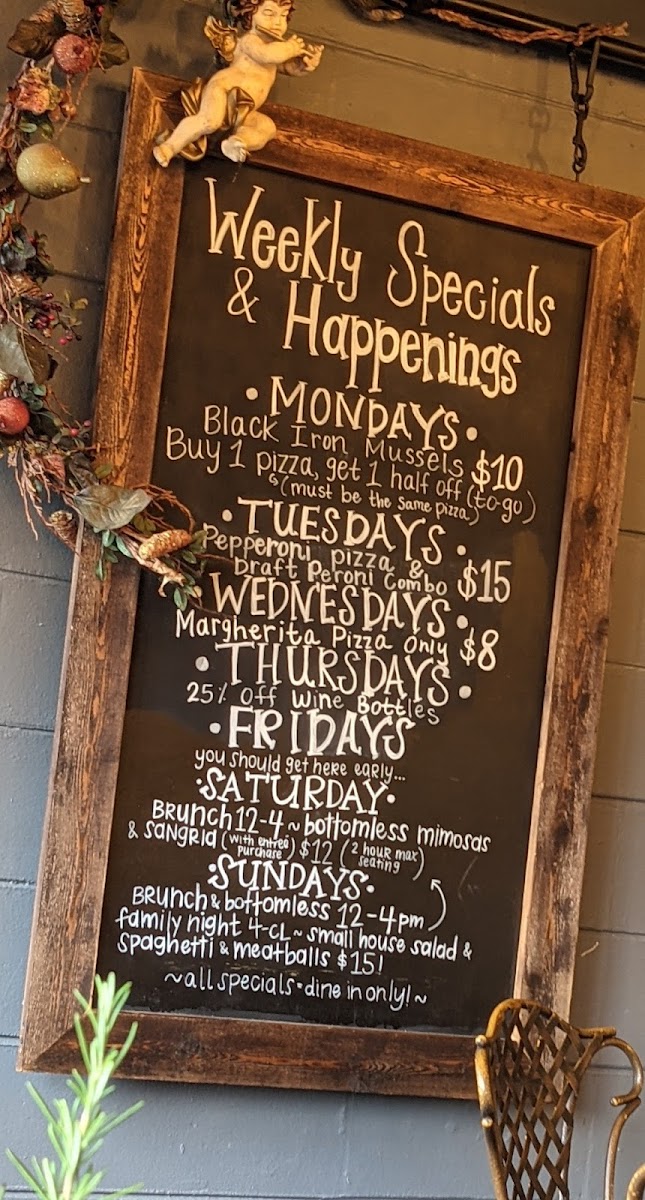 Weekly Specials
& Happenings
• MONDAYS •
Black Iron Mussels $10
Buy 1 pizza, get 1 half off (to-go)
(must be the same pizza)
• TUESDAYS •
Pepperoni pizza &
Draft Peroni Combo $15
• WEDNESDAYS •
Margherita Pizza only $8
• THURSDAYS •
25% off wine Bottles
• FRIDAYS
you should get here early...
• SATURDAY •
Brunch 12-4 ~ bottomless mimosas
& sangria (with entrea purchase) $12 (2 hour max seating)
• SUNDAYS •
Brunch & bottomless 12-4pm
family night 4-CL ~ small house salad &
spaghetti & meatballs $15!
~all specials • dine in only!~